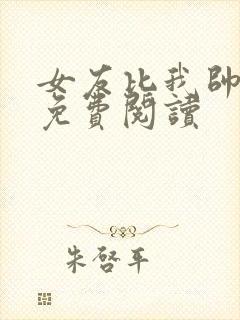 女友比我帥
免費閱讀
朱啓平